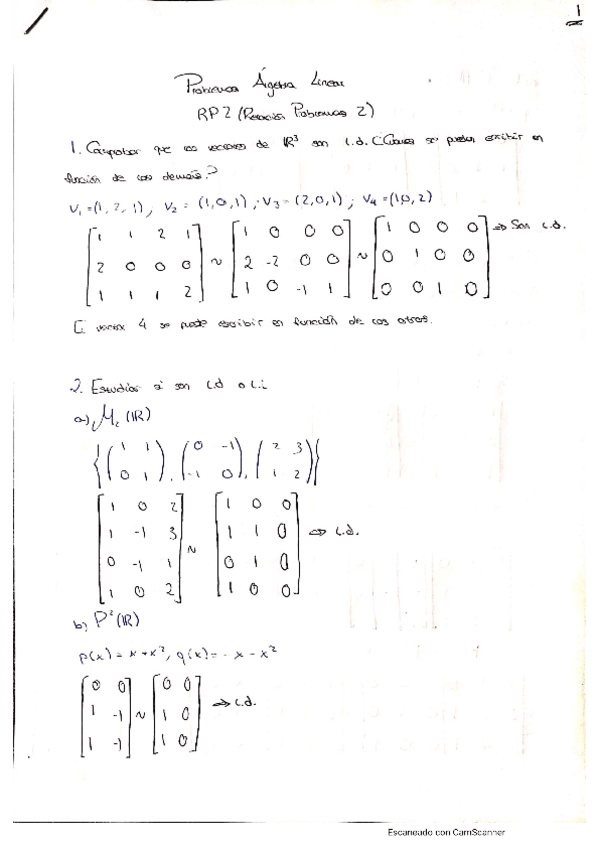 1
Problemas Álgebra Lineal
RP2 (Relación Problemas 2)
1. Comprobar que los vectores de IR³ son l.d. ¿Cuales se pueden escribir en
función de los demás?
V₁=(1, 2, 1); V₂ = (1,0,1); V₃ = (2,0,1); V₄ = (1,0,2)
[1 1 2 1; 2 0 0 0; 1 1 1 2] ~ [1 0 0 0; 2 -2 0 0; 1 0 -1 1] ~ [1 0 0 0; 0 1 0 0; 0 0 1 0] ⇒ Son l.d.
El vector 4 se puede escribir en función de los otros.
2. Estudiar si son l.d o l.i
a) M₂(IR)
{(1 1; 0 1), (0 -1; -1 0), (2 3; 1 2)}
[1 0 2; 1 -1 3; 0 -1 1; 1 0 2] ~ [1 0 0; 1 1 0; 0 1 0; 1 0 0] ⇒ l.d.
b) P²(IR)
p(x) = x+x², q(x) = -x-x²
[0 0; 1 -1; 1 -1] ~ [0 0; 1 0; 1 0] ⇒ l.d.
Escaneado con CamScanner